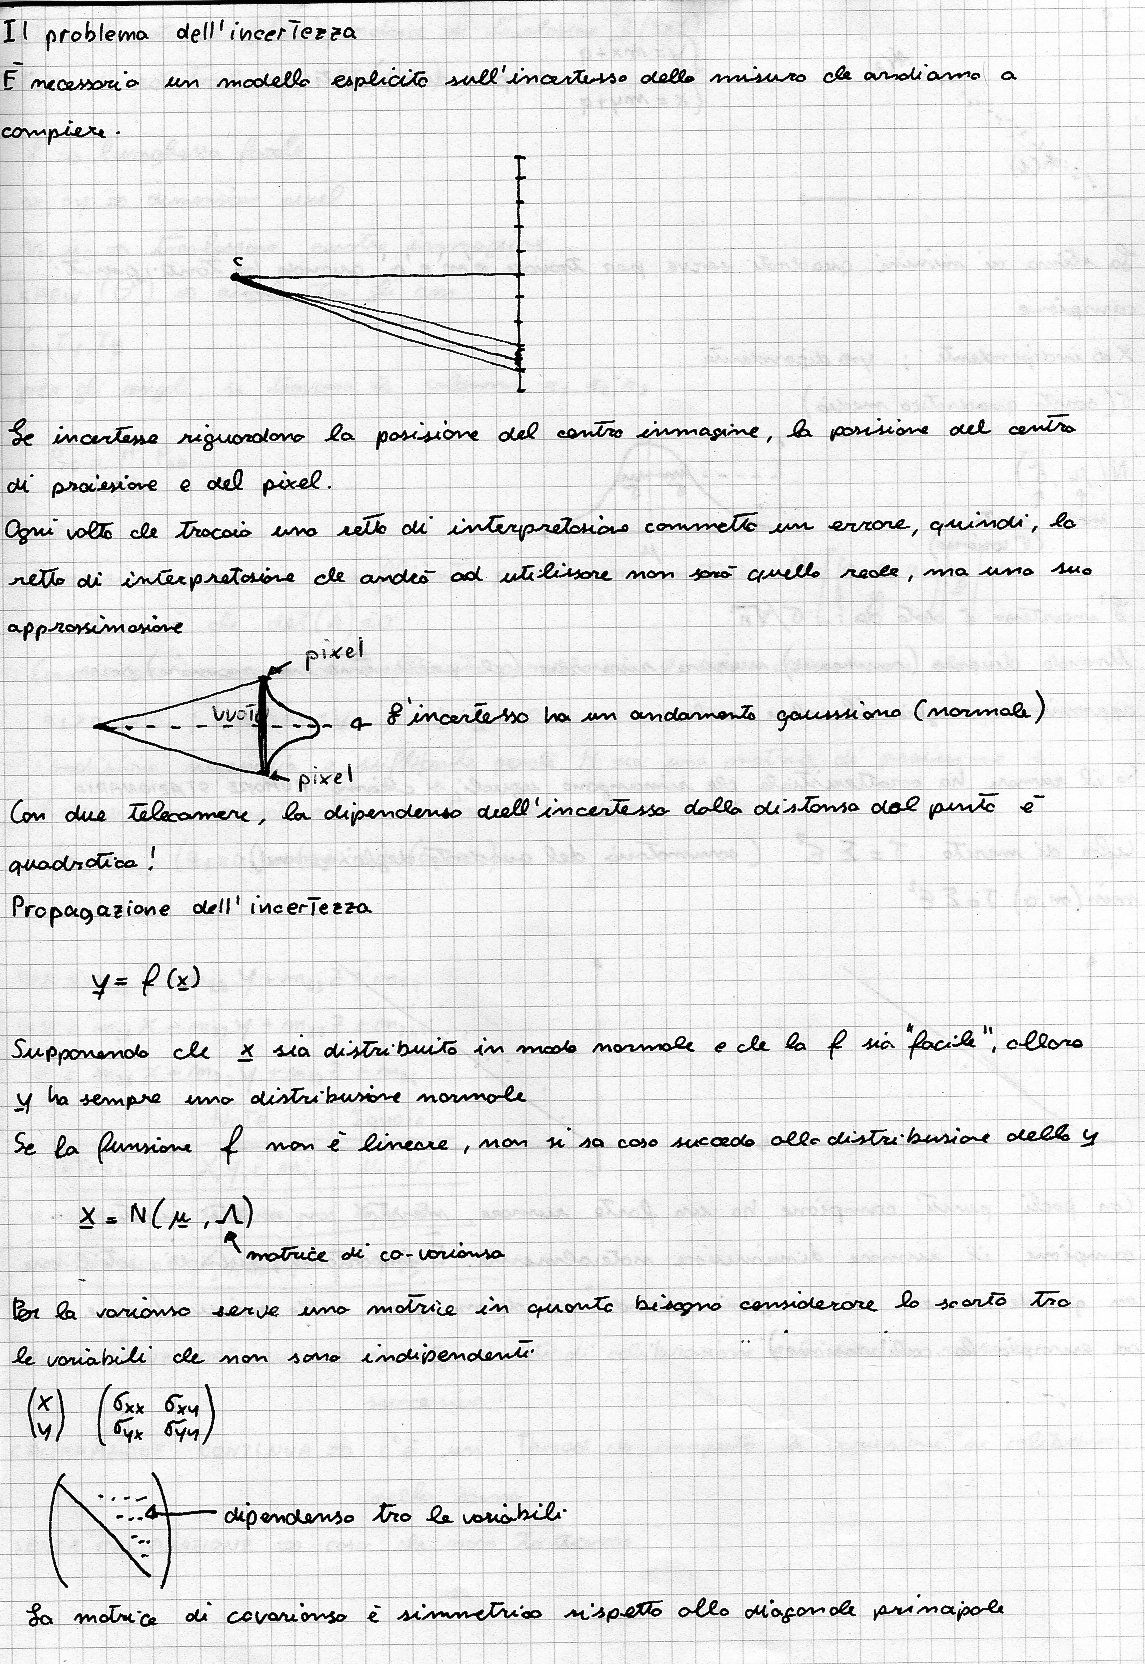 Il problema dell'incertezza
È necessario un modello esplicito sull'incertezza della misura che andiamo a
compiere.
C
Le incertezze riguardano la posizione del centro immagine, la posizione del centro
di proiezione e del pixel.
Ogni volta che traccio una retta di interpretazione commetto un errore, quindi, la
retta di interpretazione che andrò ad utilizzare non sarà quella reale, ma una sua
approssimazione
pixel
VUOTO
L'incertezza ha un andamento gaussiano (normale)
pixel
Con due telecamere, la dipendenza dell'incertezza dalla distanza dal punto è
quadratica!
Propagazione dell'incertezza
y = f(x)
Supponendo che x sia distribuito in modo normale e che la f sia "facile", allora
y ha sempre una distribuzione normale
Se la funzione f non è lineare, non si sa cosa succeda alla distribuzione della y
x = N(μ, Λ)
matrice di co-varianza
Per la varianza serve una matrice in quanto bisogna considerare lo scarto tra
le variabili che non sono indipendenti
(x) (σxx σxy)
(y) (σyx σyy)
dipendenza tra le variabili
La matrice di covarianza è simmetrica rispetto alla diagonale principale